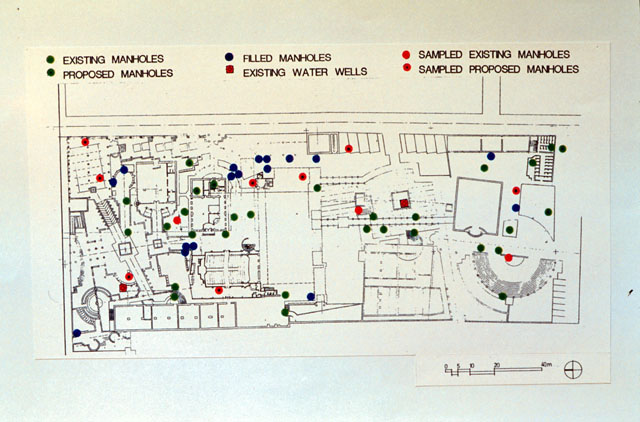 EXISTING MANHOLES
PROPOSED MANHOLES
FILLED MANHOLES
EXISTING WATER WELLS
SAMPLED EXISTING MANHOLES
SAMPLED PROPOSED MANHOLES
0 5 10 20 40 m